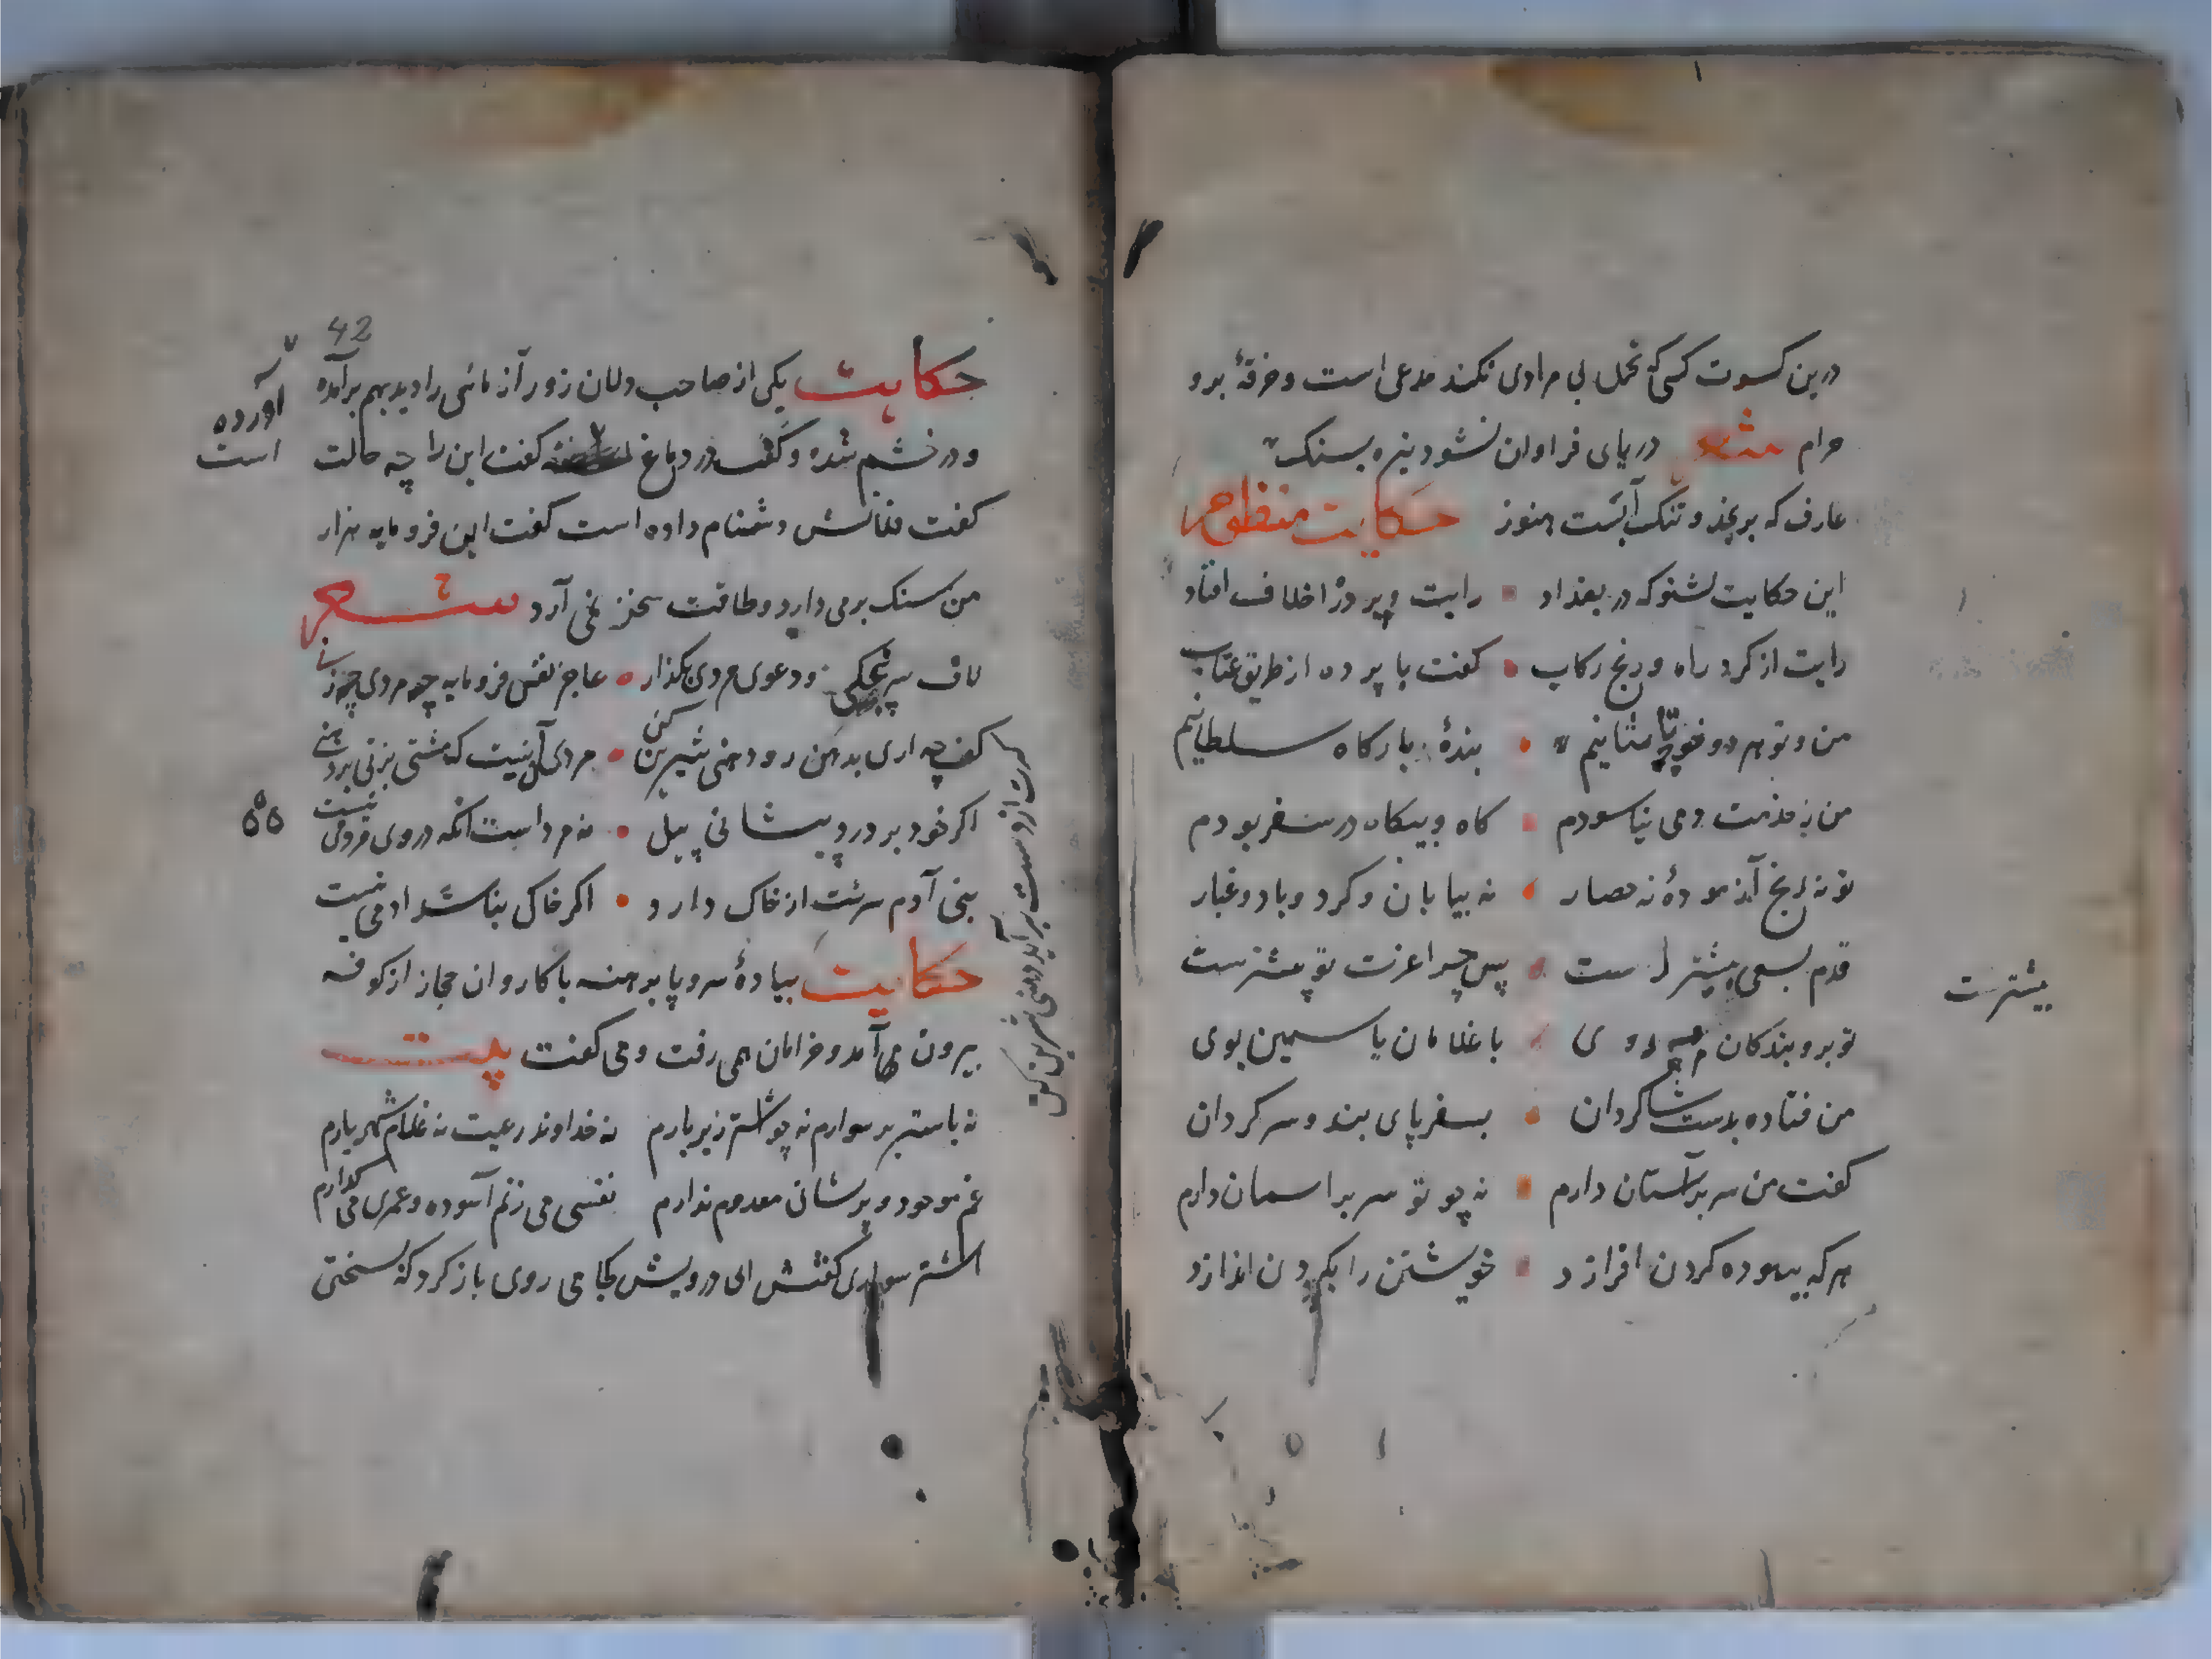 درین کسوت کسی که تحمل بی مرادی نکند مدعی است و خرقهٔ برو
حرام دریای فراوان نشود تیره بسنک
عارف که برنجد و تنک آبست هنوز حکایت منظوم
این حکایت بشنو که در بغداد رایت و پرده را خلاف افتاد
رایت از کرد راه و رنج رکاب کفت با پرده از طریق عتاب
من و تو هر دو خواجه تاشانیم بندهٔ بارکاه سلطانیم
من ز خدمت دمی نیاسودم کاه و بیکاه در سفر بودم
تو نه رنج آزمودهٔ نه حصار نه بیابان و کرد و باد و غبار
قدم بسعی پیشتر است پس چرا عزت تو پیشترست
بیشترست
تو بر و بندکان مه روی با غلامان یاسمین بوی
من فتاده بدست شاکردان بسفر پای بند و سرکردان
کفت من سر بر آستان دارم نه چو تو سر براسمان دارم
هر که بیهوده کردن افرازد خویشتن را بکردن اندازد
42
حکایت یکی از صاحب دلان زور آزمائی را دید بهم برآمده
و در خشم شده و کف در دماغ کفت این را چه حالت
آورده
است
کفت فلانش دشنام داده است کفت این فرومایه هزار
من سنک برمی دارد و طاقت سخنی نمی آرد شعر
لاف سرپنجکی و دعوی مردی بکذار عاجز نفس فرومایه چه مردی چه زنی
کرت از دست برآید دهنی شیرین کن
مردی آن نیست که مشتی بزنی بر دهنی
اکر خود بر درد پیشانی پیل نه مرد است انکه در وی مردمی نیست
بنی آدم سرشت از خاک دارد اکر خاکی نباشد ادمی نیست
حکایت پیادهٔ سر و پا برهنه با کاروان حجاز از کوفه
بیرون می آمد و خرامان همی رفت و می کفت بیت
نه باستر بر سوارم نه چو اشتر زیر بارم نه خداوند رعیت نه غلام شهریارم
غم موجود و پرشانی معدوم ندارم نفسی می زنم آسوده و عمری می کذارم
اشتر سواری کفتش ای درویش کجا می روی باز کرد که بسختی